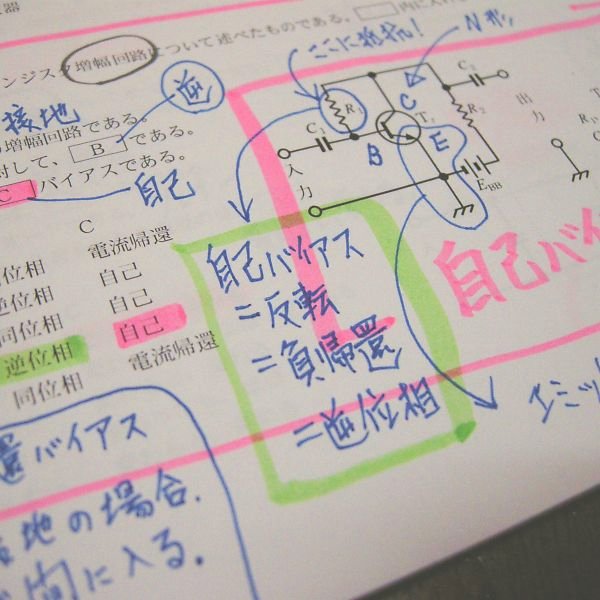 増幅回路について述べたものである。
ここに抵抗!
接地
逆
増幅回路である。
対して、 B である。
C バイアスである。
自己
C
電流帰還
位相 自己
逆位相 自己
同位相 自己
逆位相 電流帰還
同位相
R₁
C₁
C
B
E
C₂
R₂
EBB
入力
出力
自己バイアス
=反転
=負帰還
=逆位相
自己バ
エミッ
還バイアス
地の場合.
間に入る.